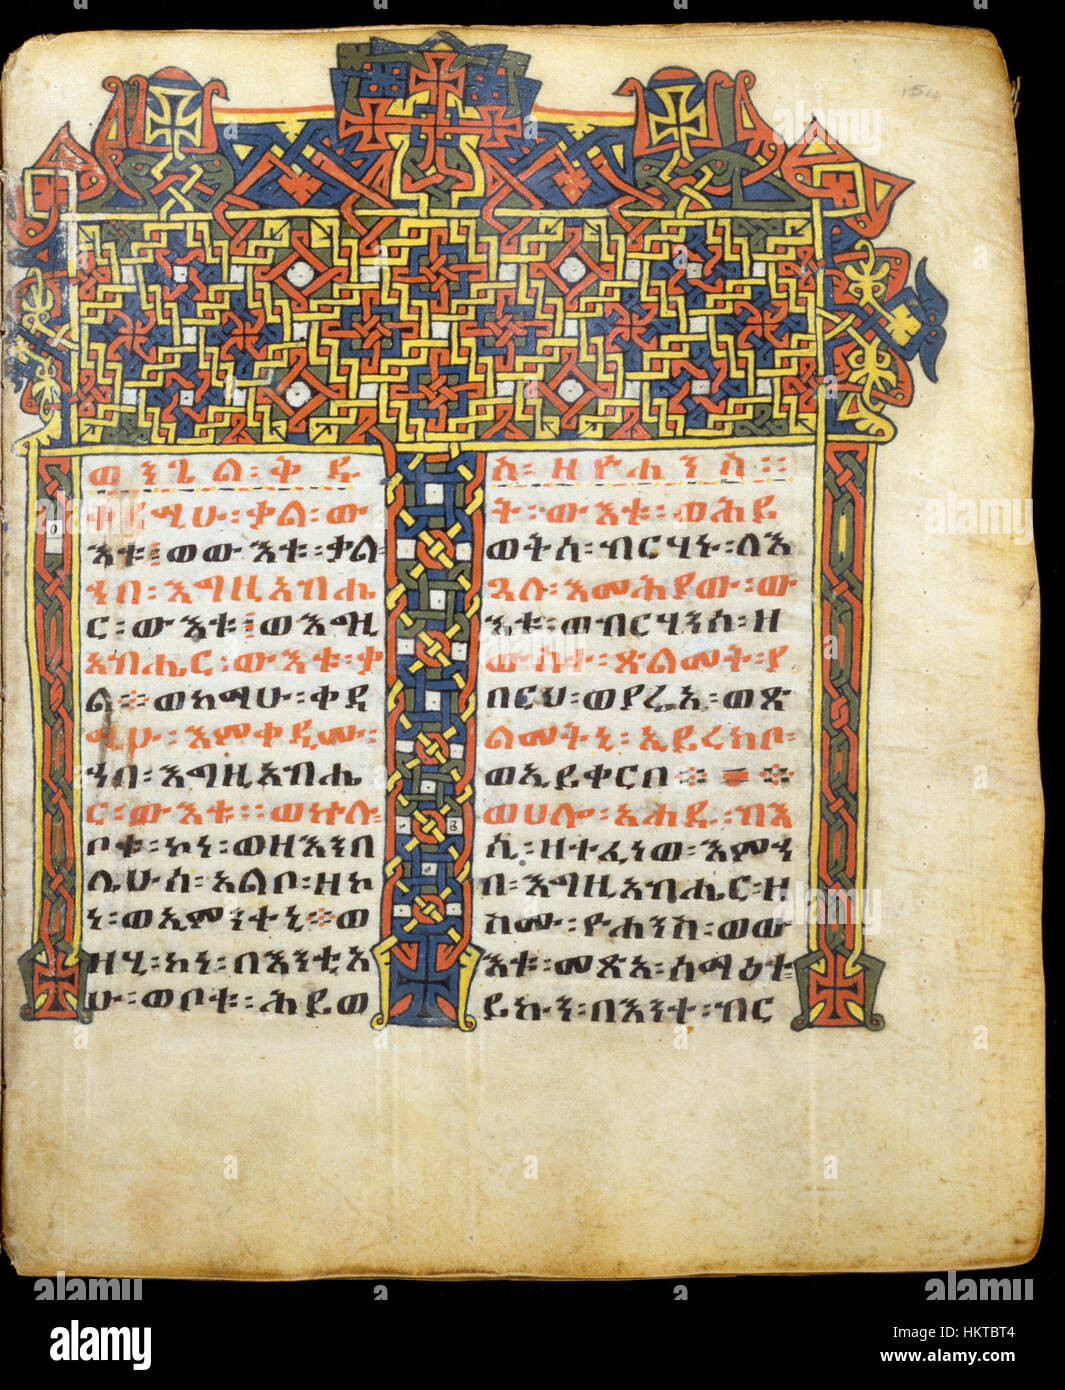 154
ወንጌል፡ቅዱ
ቀዳሚሁ፡ቃል፡ው
እቱ፡ወውእቱ፡ቃል፡
ኀበ፡እግዚአብሔ
ር፡ውእቱ፡ወእግዚ
አብሔር፡ውእቱ፡ቃ
ል፡፡ወከማሁ፡ቀዳ
ሚሁ፡እምቀዲሙ፡
ኀበ፡እግዚአብሔ
ር፡ውእቱ፡፡ወኵሉ፡
ቦቱ፡ኮነ፡ወዘእንበ
ሌሁሰ፡አልቦ፡ዘኮ
ነ፡ወኢምንተኒ፡፡ወ
ዘሂ፡ኮነ፡በእንቲአ
ሁ፡ወቦቱ፡ሕይወ
ስ፡ዘዮሐንስ፡፡
ት፡ውእቱ፡ወሕይ
ወትሰ፡ብርሃኑ፡ለእ
ጓለ፡እመሕያው፡ው
እቱ፡ወብርሃንሰ፡ዘ
ውስተ፡ጽልመት፡ያ
በርህ፡ወያሬኢ፡ወጽ
ልመትኒ፡ኢይረክቦ፡
ወኢይቀርቦ፡፡
ወሀሎ፡አሐዱ፡ብእ
ሲ፡ዘተፈነወ፡እምኀ
በ፡እግዚአብሔር፡ዘ
ስሙ፡ዮሐንስ፡ወው
እቱ፡መጽአ፡ሰማዕተ፡
ይኩን፡በእንተ፡ብር
alamy stock photo
HKTBT4
www.alamy.com